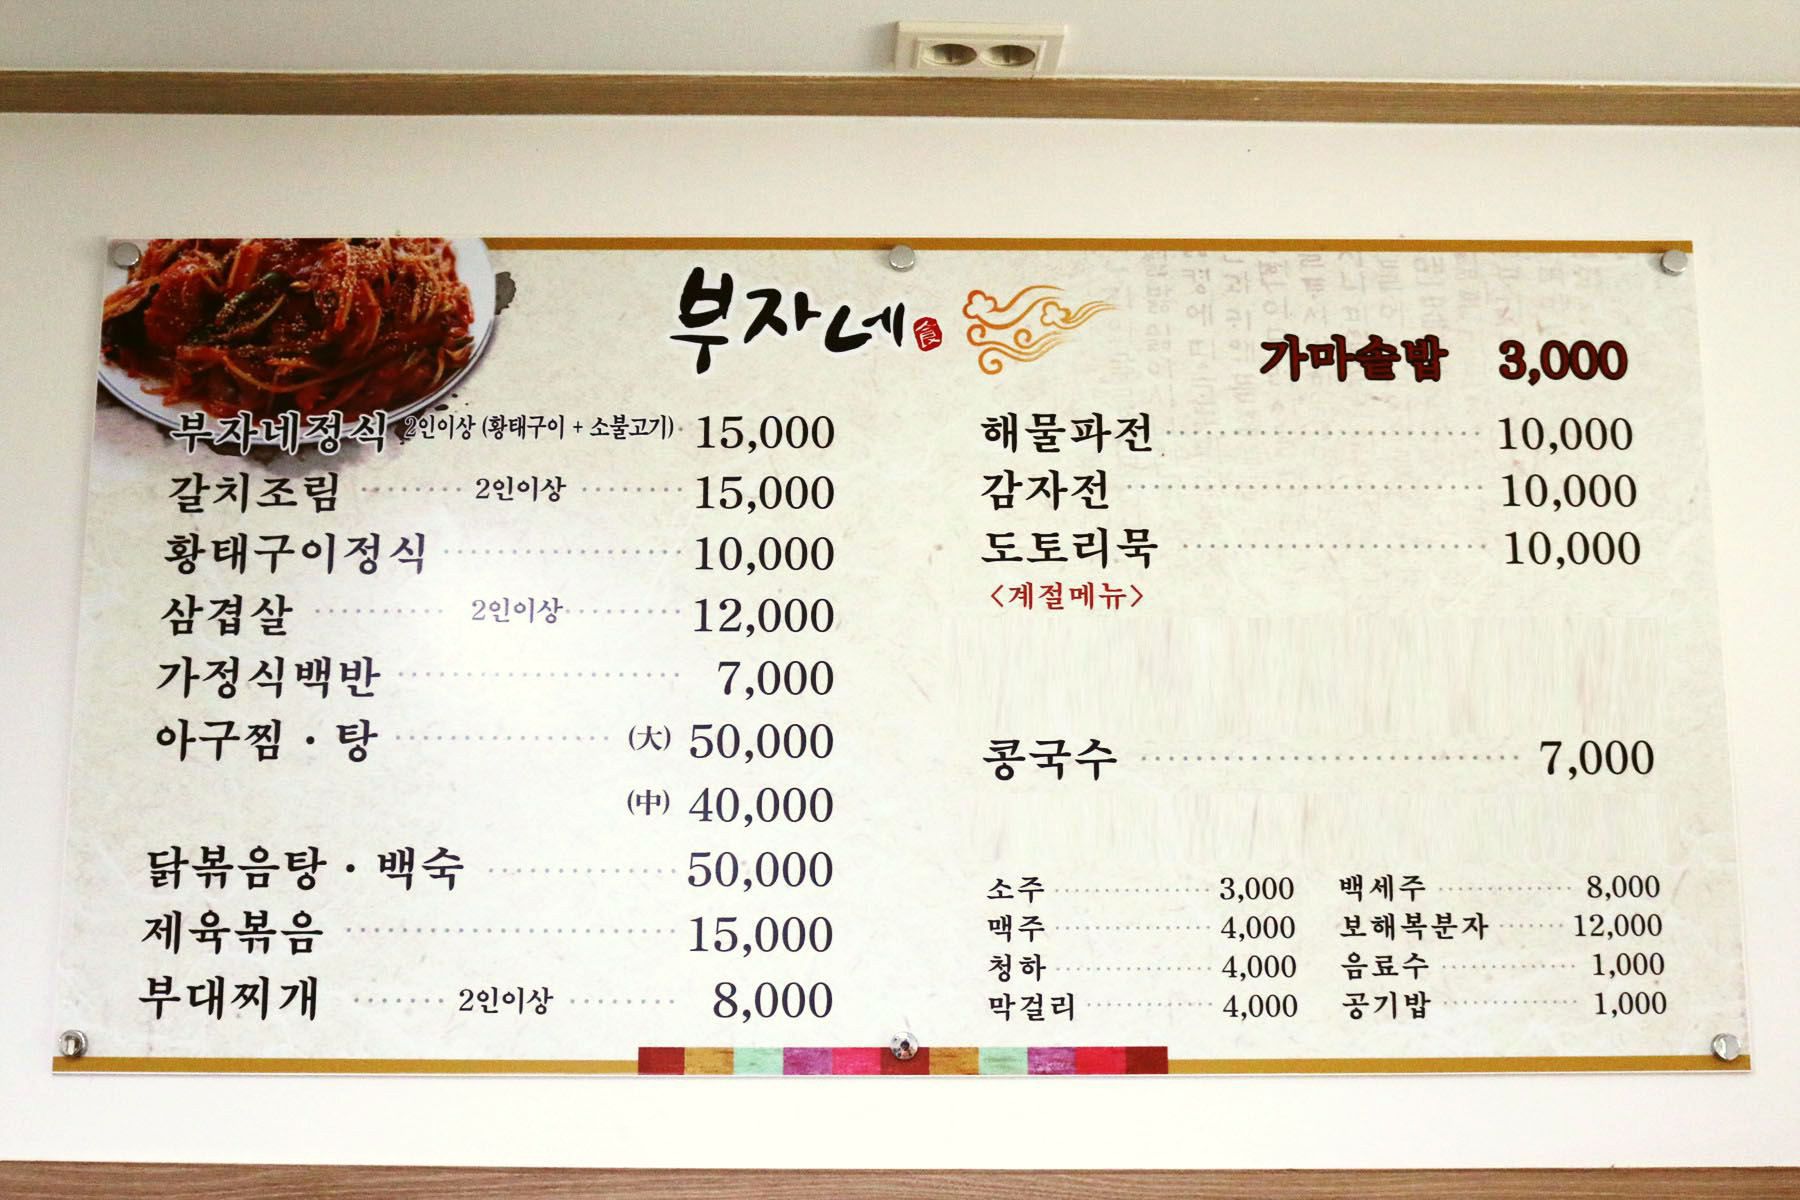 부자네 食
가마솥밥 3,000
부자네정식 2인이상 (황태구이 + 소불고기) 15,000
갈치조림 2인이상 15,000
황태구이정식 10,000
삼겹살 2인이상 12,000
가정식백반 7,000
아구찜 · 탕 (大) 50,000
(中) 40,000
닭볶음탕 · 백숙 50,000
제육볶음 15,000
부대찌개 2인이상 8,000
해물파전 10,000
감자전 10,000
도토리묵 10,000
<계절메뉴>
콩국수 7,000
소주 3,000
맥주 4,000
청하 4,000
막걸리 4,000
백세주 8,000
보해복분자 12,000
음료수 1,000
공기밥 1,000